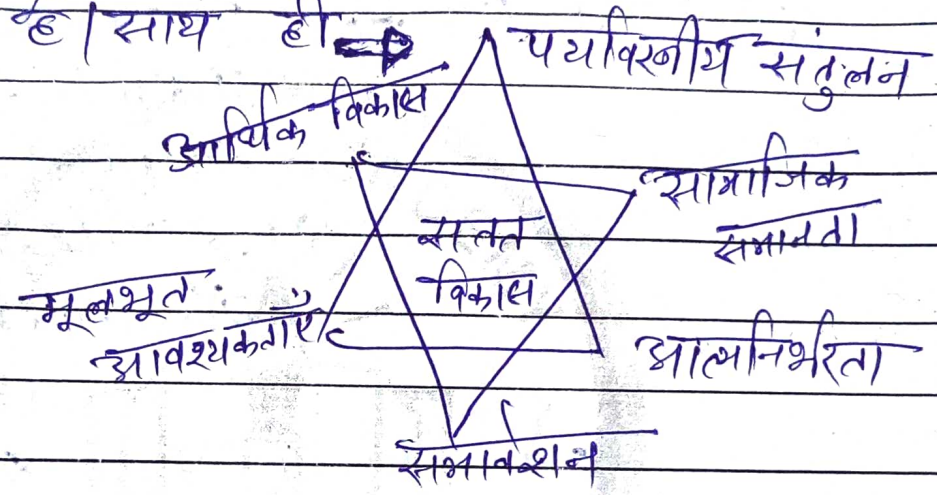 है। साथ ही →
पर्यावरनीय संतुलन
आर्थिक विकास
सामाजिक
समानता
सतत
विकास
मूलभूत
आवश्यकताएँ
आत्मनिर्भरता
समावेशन